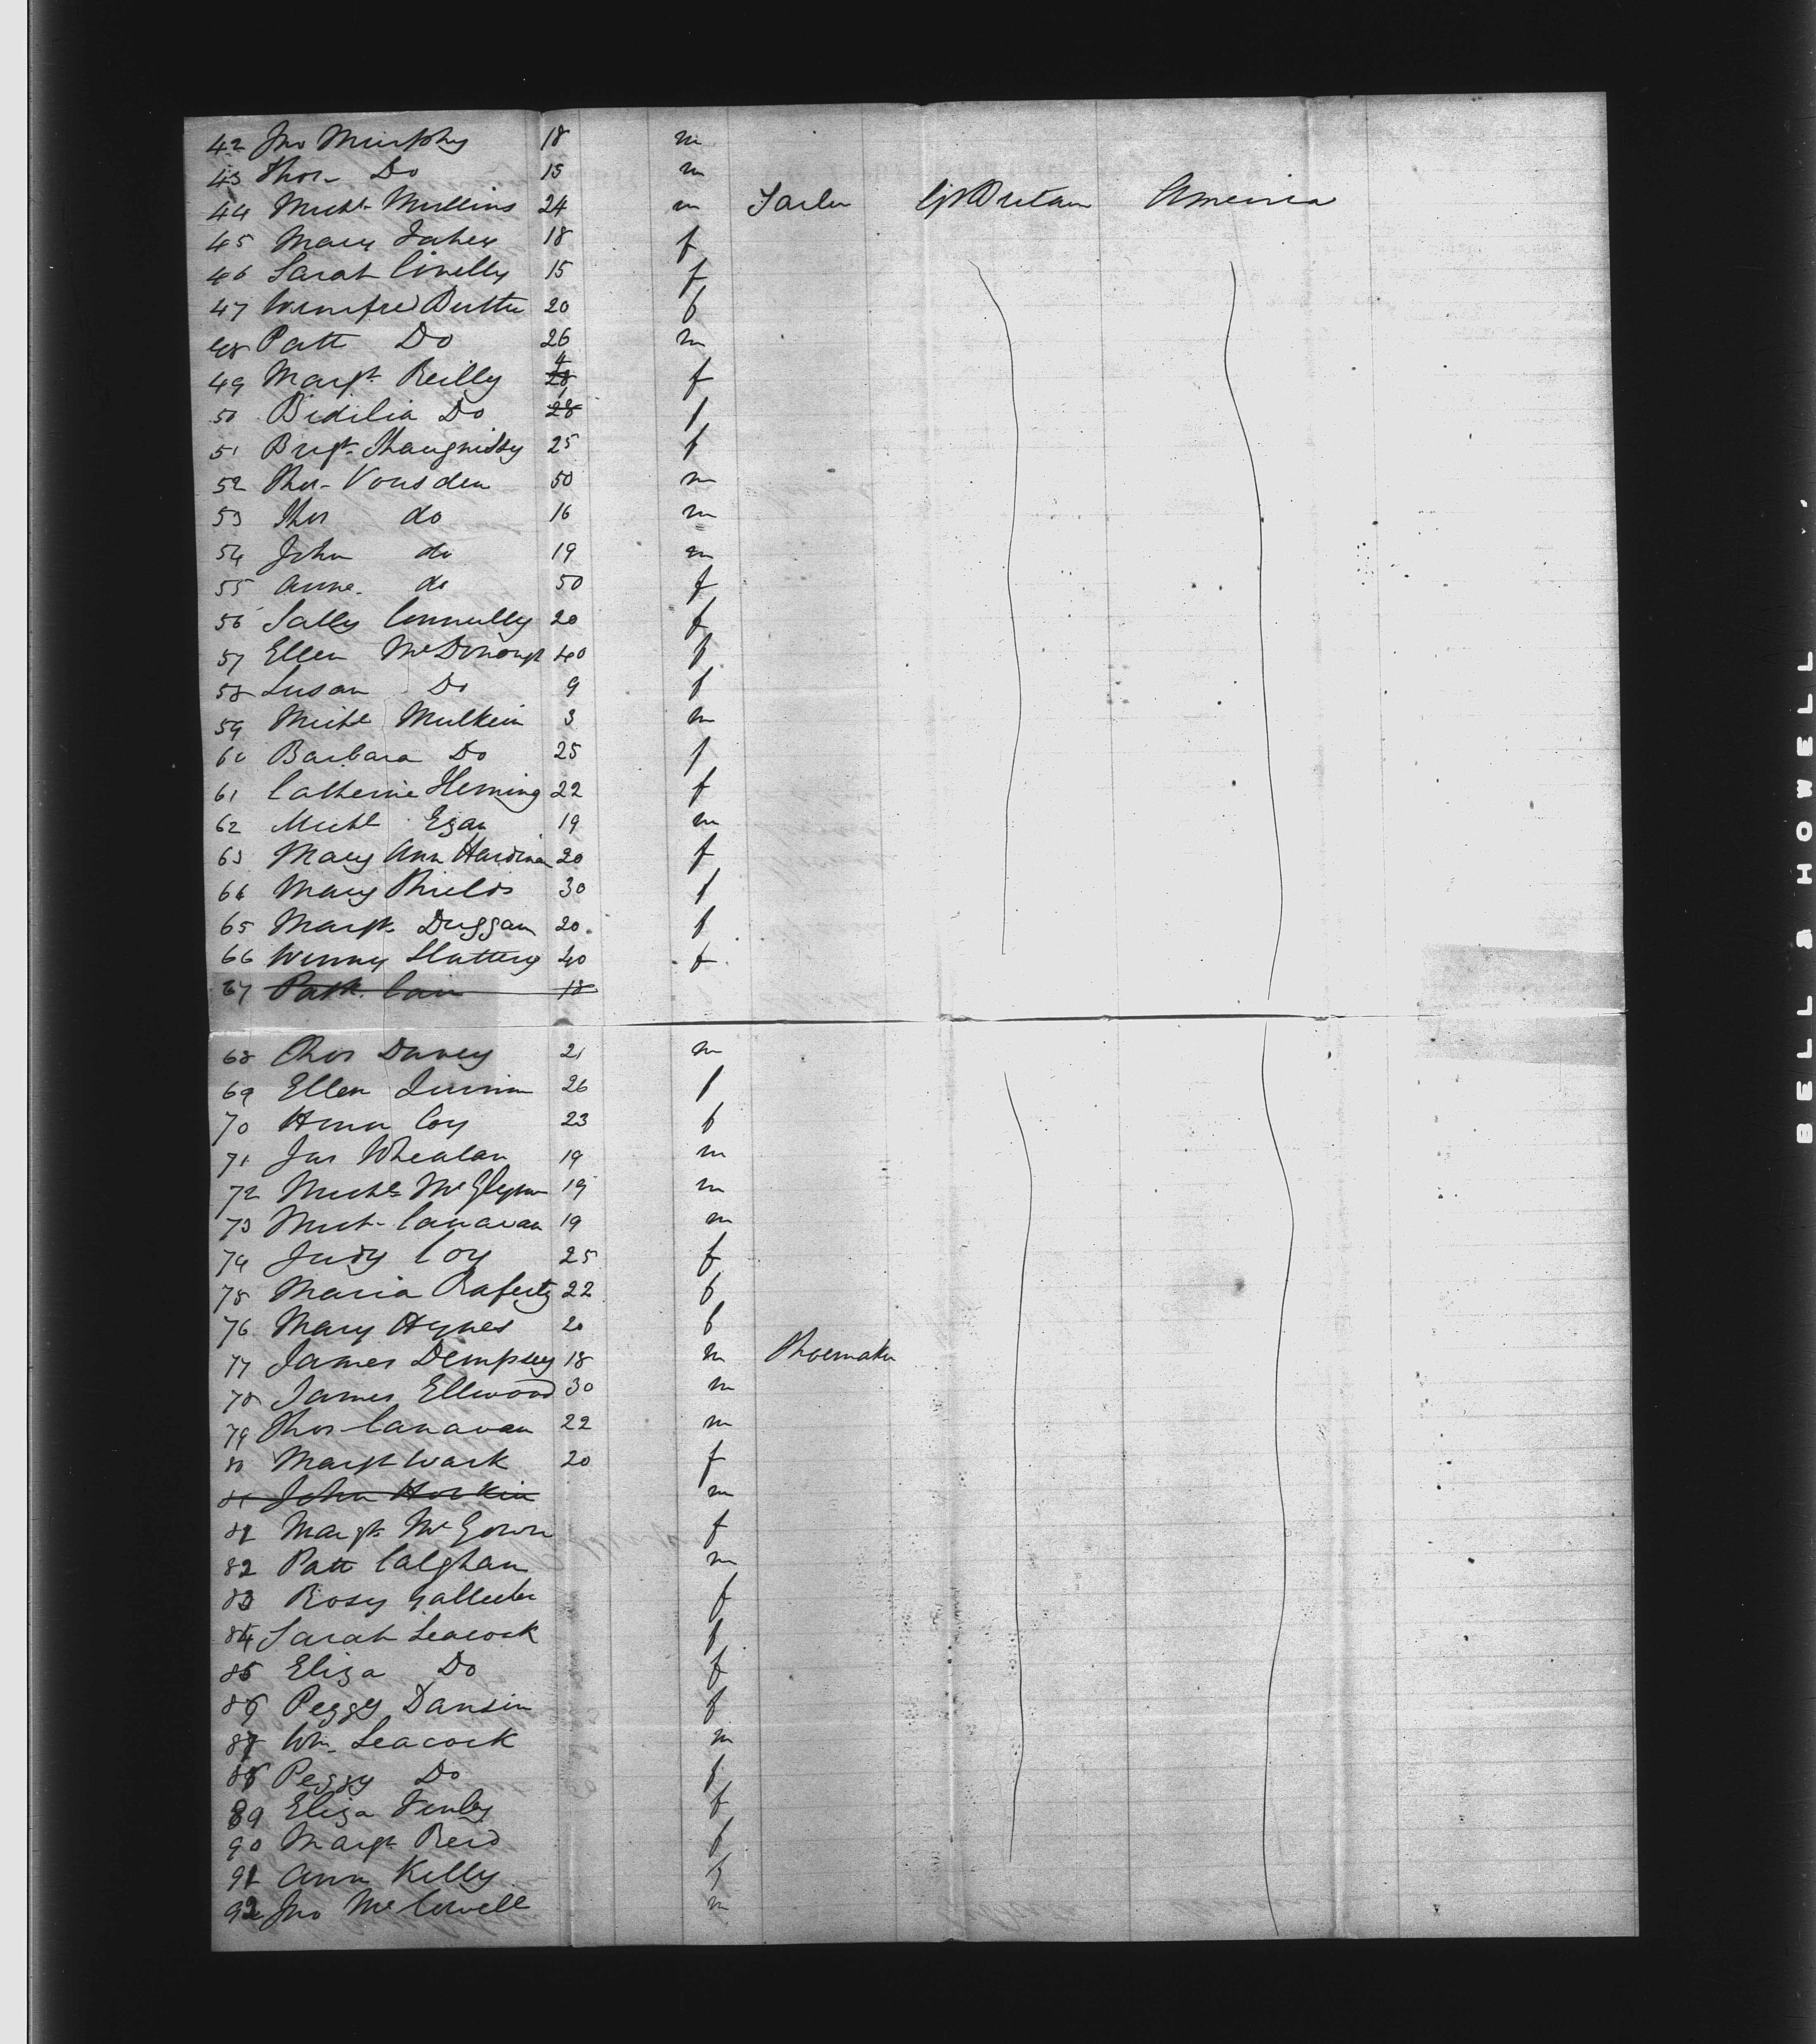 42 Jno Murphy 18 m
43 Thos Do 15 m
44 Michl Mullins 24 m Tailor Gt Britain America
45 Mary Fahey 18 f
46 Sarah Conelly 15 f
47 Winifred 20 f
48 Patt Do 26 m
49 Margt Reilly 28 4 f
50 Bidilia Do 28 1 f
51 Brigt Shaugnissy 25 f
52 Thos Vousden 50 m
53 Thos do 16 m
54 John do 19 m
55 Anne do 50 f
56 Sally Connully 20 f
57 Ellen McDonough 40 f
58 Susan Do 9 f
59 Michl Mulkein 3 m
60 Barbara Do 25 f
61 Catherine Fleming 22 f
62 Michl Egan 19 m
63 Mary Ann Hardiman 20 f
64 Mary Shields 30 f
65 Margt Duggan 20 f
66 Winny Slattery 40 f
67 Patk Cain 18
68 Thos Davey 21 m
69 Ellen Quinn 26 f
70 Honr Coy 23 f
71 Jas Whealan 19 m
72 Michl McGlynn 19 m
73 Mich Canavan 19 m
74 Judy Coy 25 f
75 Maria Raferty 22 f
76 Mary Hynes 20 f
77 James Dempsey 18 m Shoemaker
78 James Ellwood 30 m
79 Thos Canavan 22 m
80 Margt Wark 20 f
81 John Horkin m
81 Margt McGown f
82 Patt Calghan m
83 Rosy f
84 Sarah Leacock f
85 Eliza Do f
86 Peggy Dansin f
87 Wm Leacock m
88 Peggy Do f
89 Eliza Finley f
90 Margt Reid f
91 Ann Kelly f
92 Jno m
BELL & HOWELL